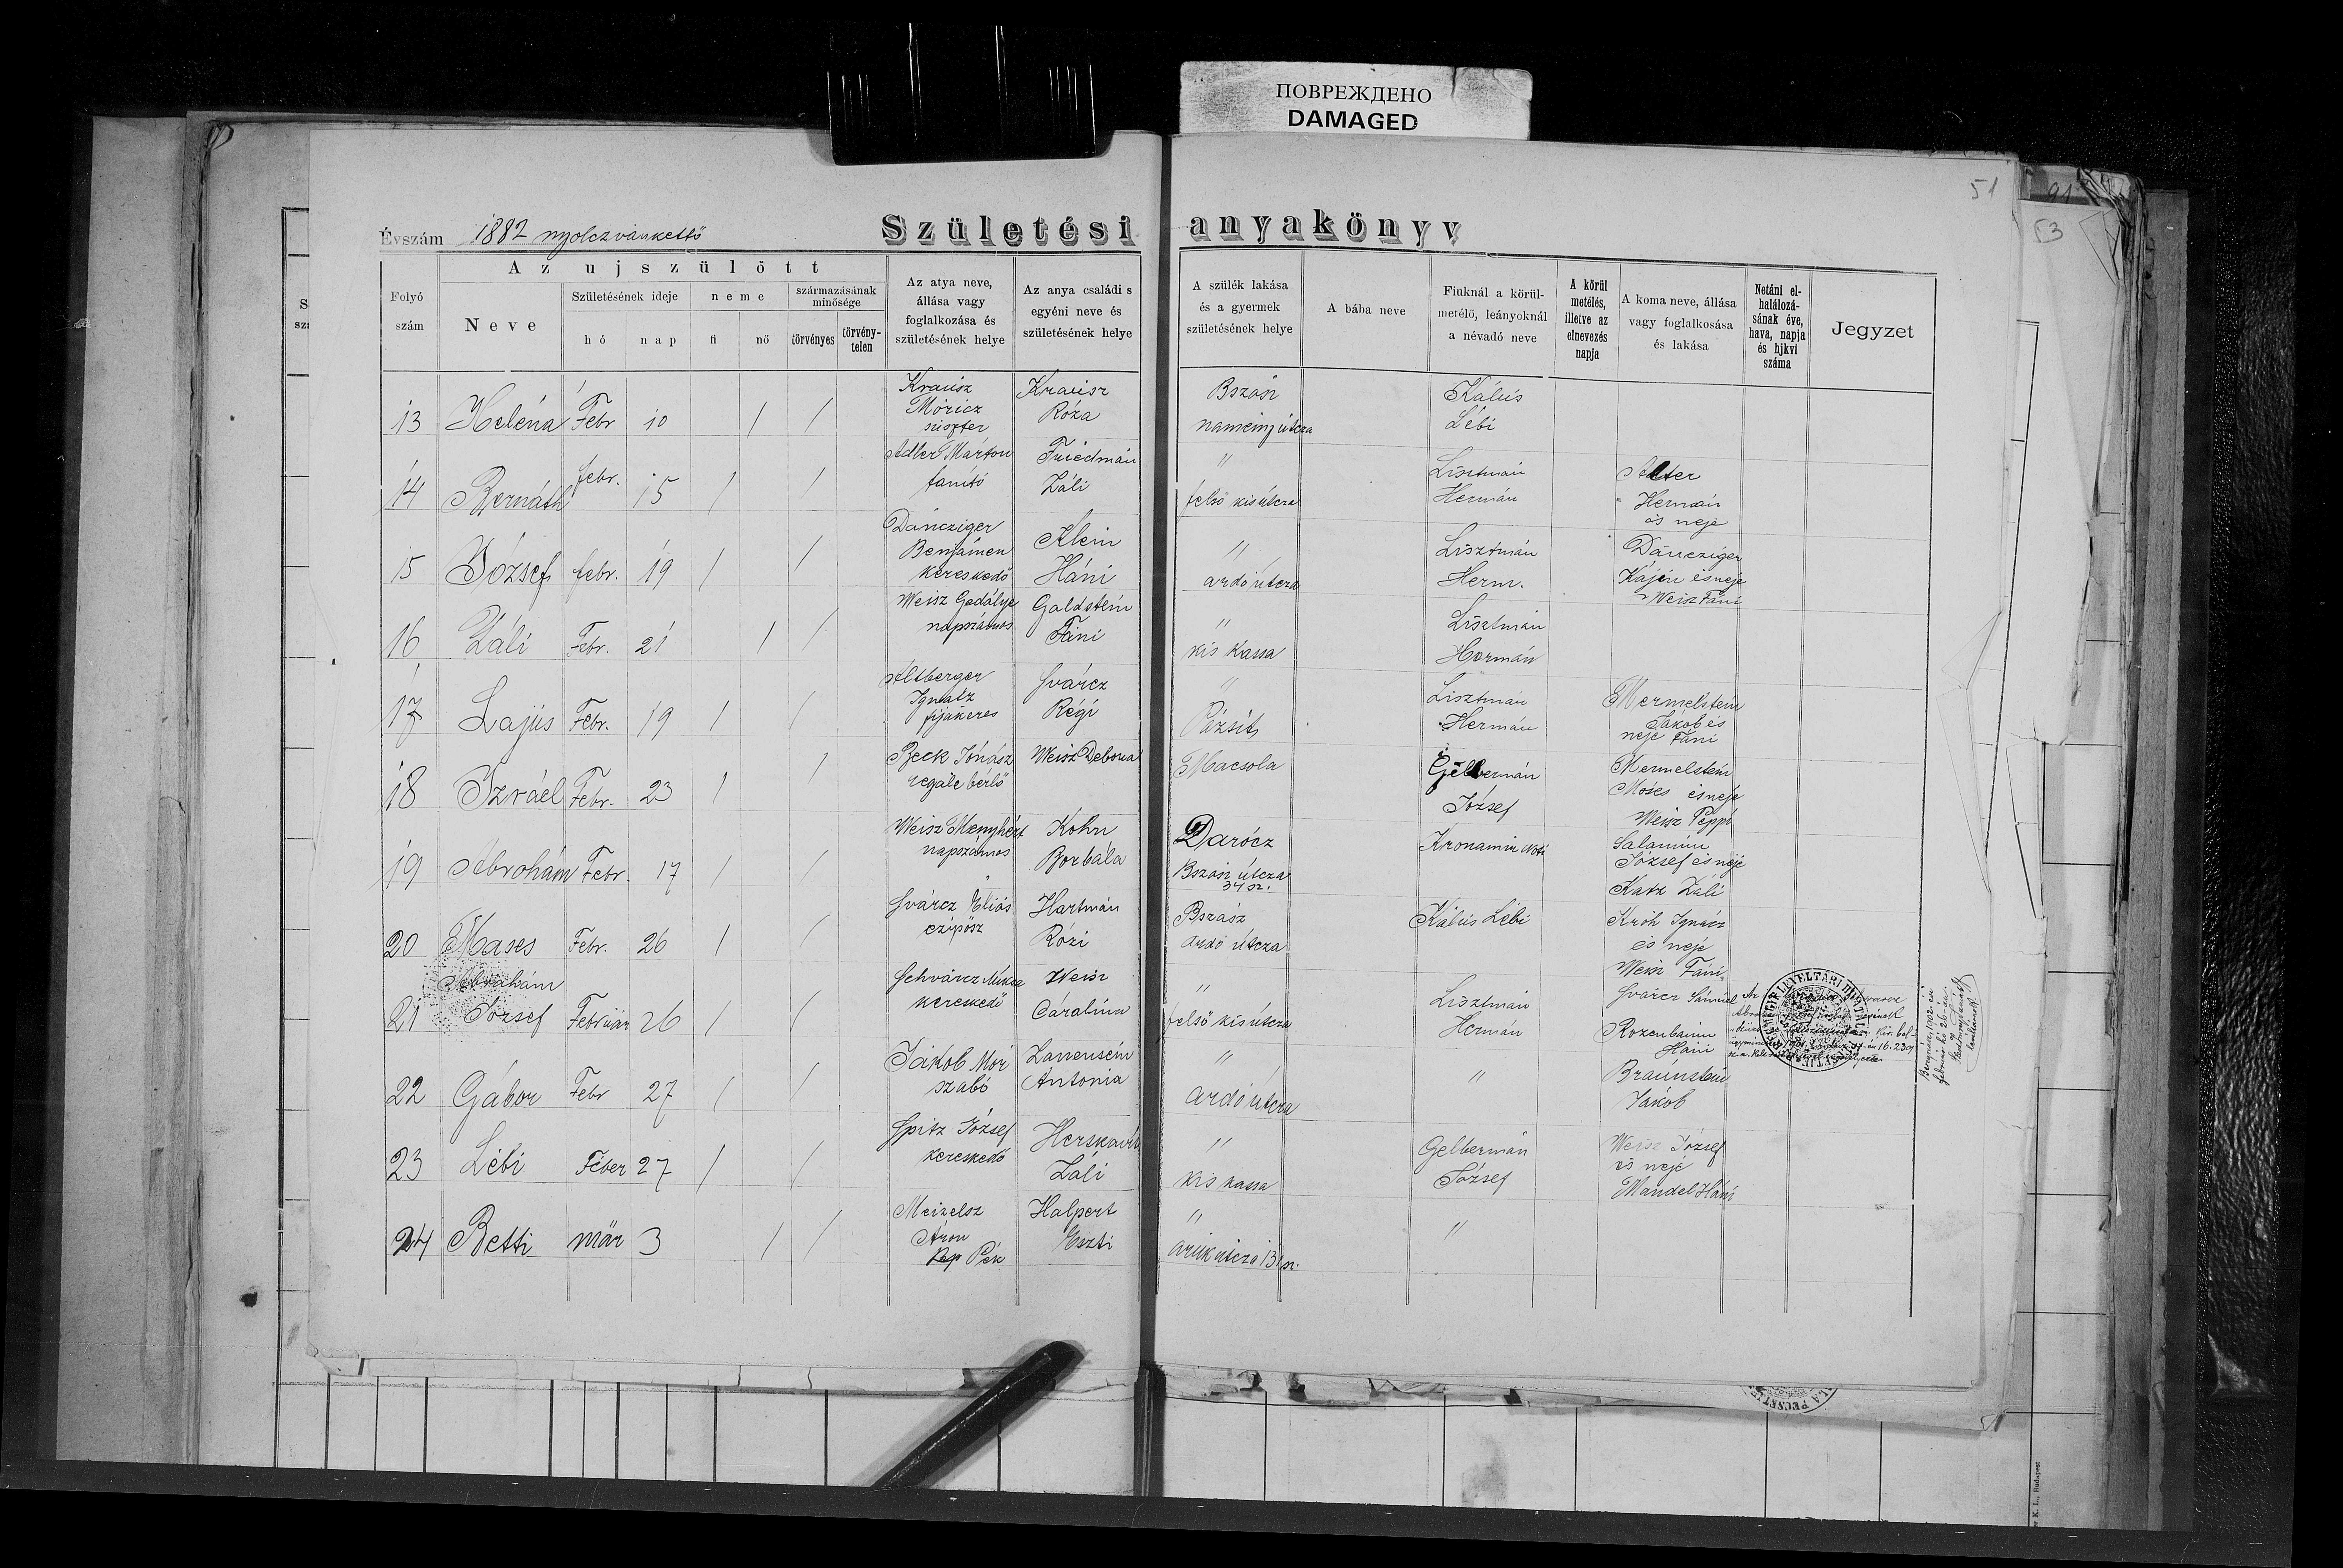 ПОВРЕЖДЕНО
DAMAGED
51
91
53
Évszám 1882 nyolczvankettő
Születési anyakönyv
Folyó szám
Az ujszülött
Neve
Születésének ideje
hó
nap
neme
fi
nő
származásának minősége
törvényes
törvény-telen
Az atya neve, állása vagy foglalkozása és születésének helye
Az anya családi s egyéni neve és születésének helye
A szülék lakása és a gyermek születésének helye
A bába neve
Fiuknál a körül-metélő, leányoknál a névadó neve
A körül metélés, illetve az elnevezés napja
A koma neve, állása vagy foglalkosása és lakása
Netáni el-halálozá-sának éve, hava, napja és hjkvi száma
Jegyzet
13 Heléna Febr 10 / / Krausz Móricz suszter Krausz Róza Bszász naményi útcza Kálús Lébi
14 Bernáth febr. 15 / / Adler Márton tanító Friedmán Záli " felső kis útcza Lisztmán Hermán Alter Hermán és neje
15 József febr. 19 / / Dáncziger Benjámen kereskedő Klein Háni " ardó útcza Lisztmán Herm. Dáncziger Káján és neje Weisz Fáni
16 Záli Febr. 21 / / Weisz Gedálye napszámos Galdstein Fáni " kis Kassa Lisztmán Hermán
17 Lajús Febr. 19 / / Altberger Ignatz fijákeres Svárcz Régi " Pázsit Lisztmán Hermán Mermelstein Jakob és neje Fáni
18 Izráel Febr. 23 / / Beck Jónász regále bérlő Weisz Debora Macsola Gelbermán József Mermelstein Móses és neje Weisz Peppi
19 Abrohám Febr. 17 / / Weisz Menyhért napszámos Kohn Borbála Darócz Bszász útcza 34 sz. Kronamir Noti Salamon József és neje Katz Záli
20 Mases Febr. 26 / / Svárcz Éliás czipősz Hartmán Rózi Bszász Ardó útcza Kálús Lébi Kroh Ignácz és neje Weisz Fáni
21 Abrahám József Február 26 / / Schvárcz Miksa kereskedő Weisz Cáralina " felső kis útcza Lisztmán Hermán Svárcz Sámuel Rozenbaum Háni
22 Gábor Febr 27 / / Jakob Mór szabó Antonia " ardó útcza " Braunstein Jakob
23 Lébi Feber 27 / / Spitz József kereskedő Herskovits Záli " kis kassa Gelbermán József Weisz József és neje Mandel Háni
24 Betti már 3 / / Meizelsz Áron Pék Halpert Eszti " árúk útcza 131 sz. "